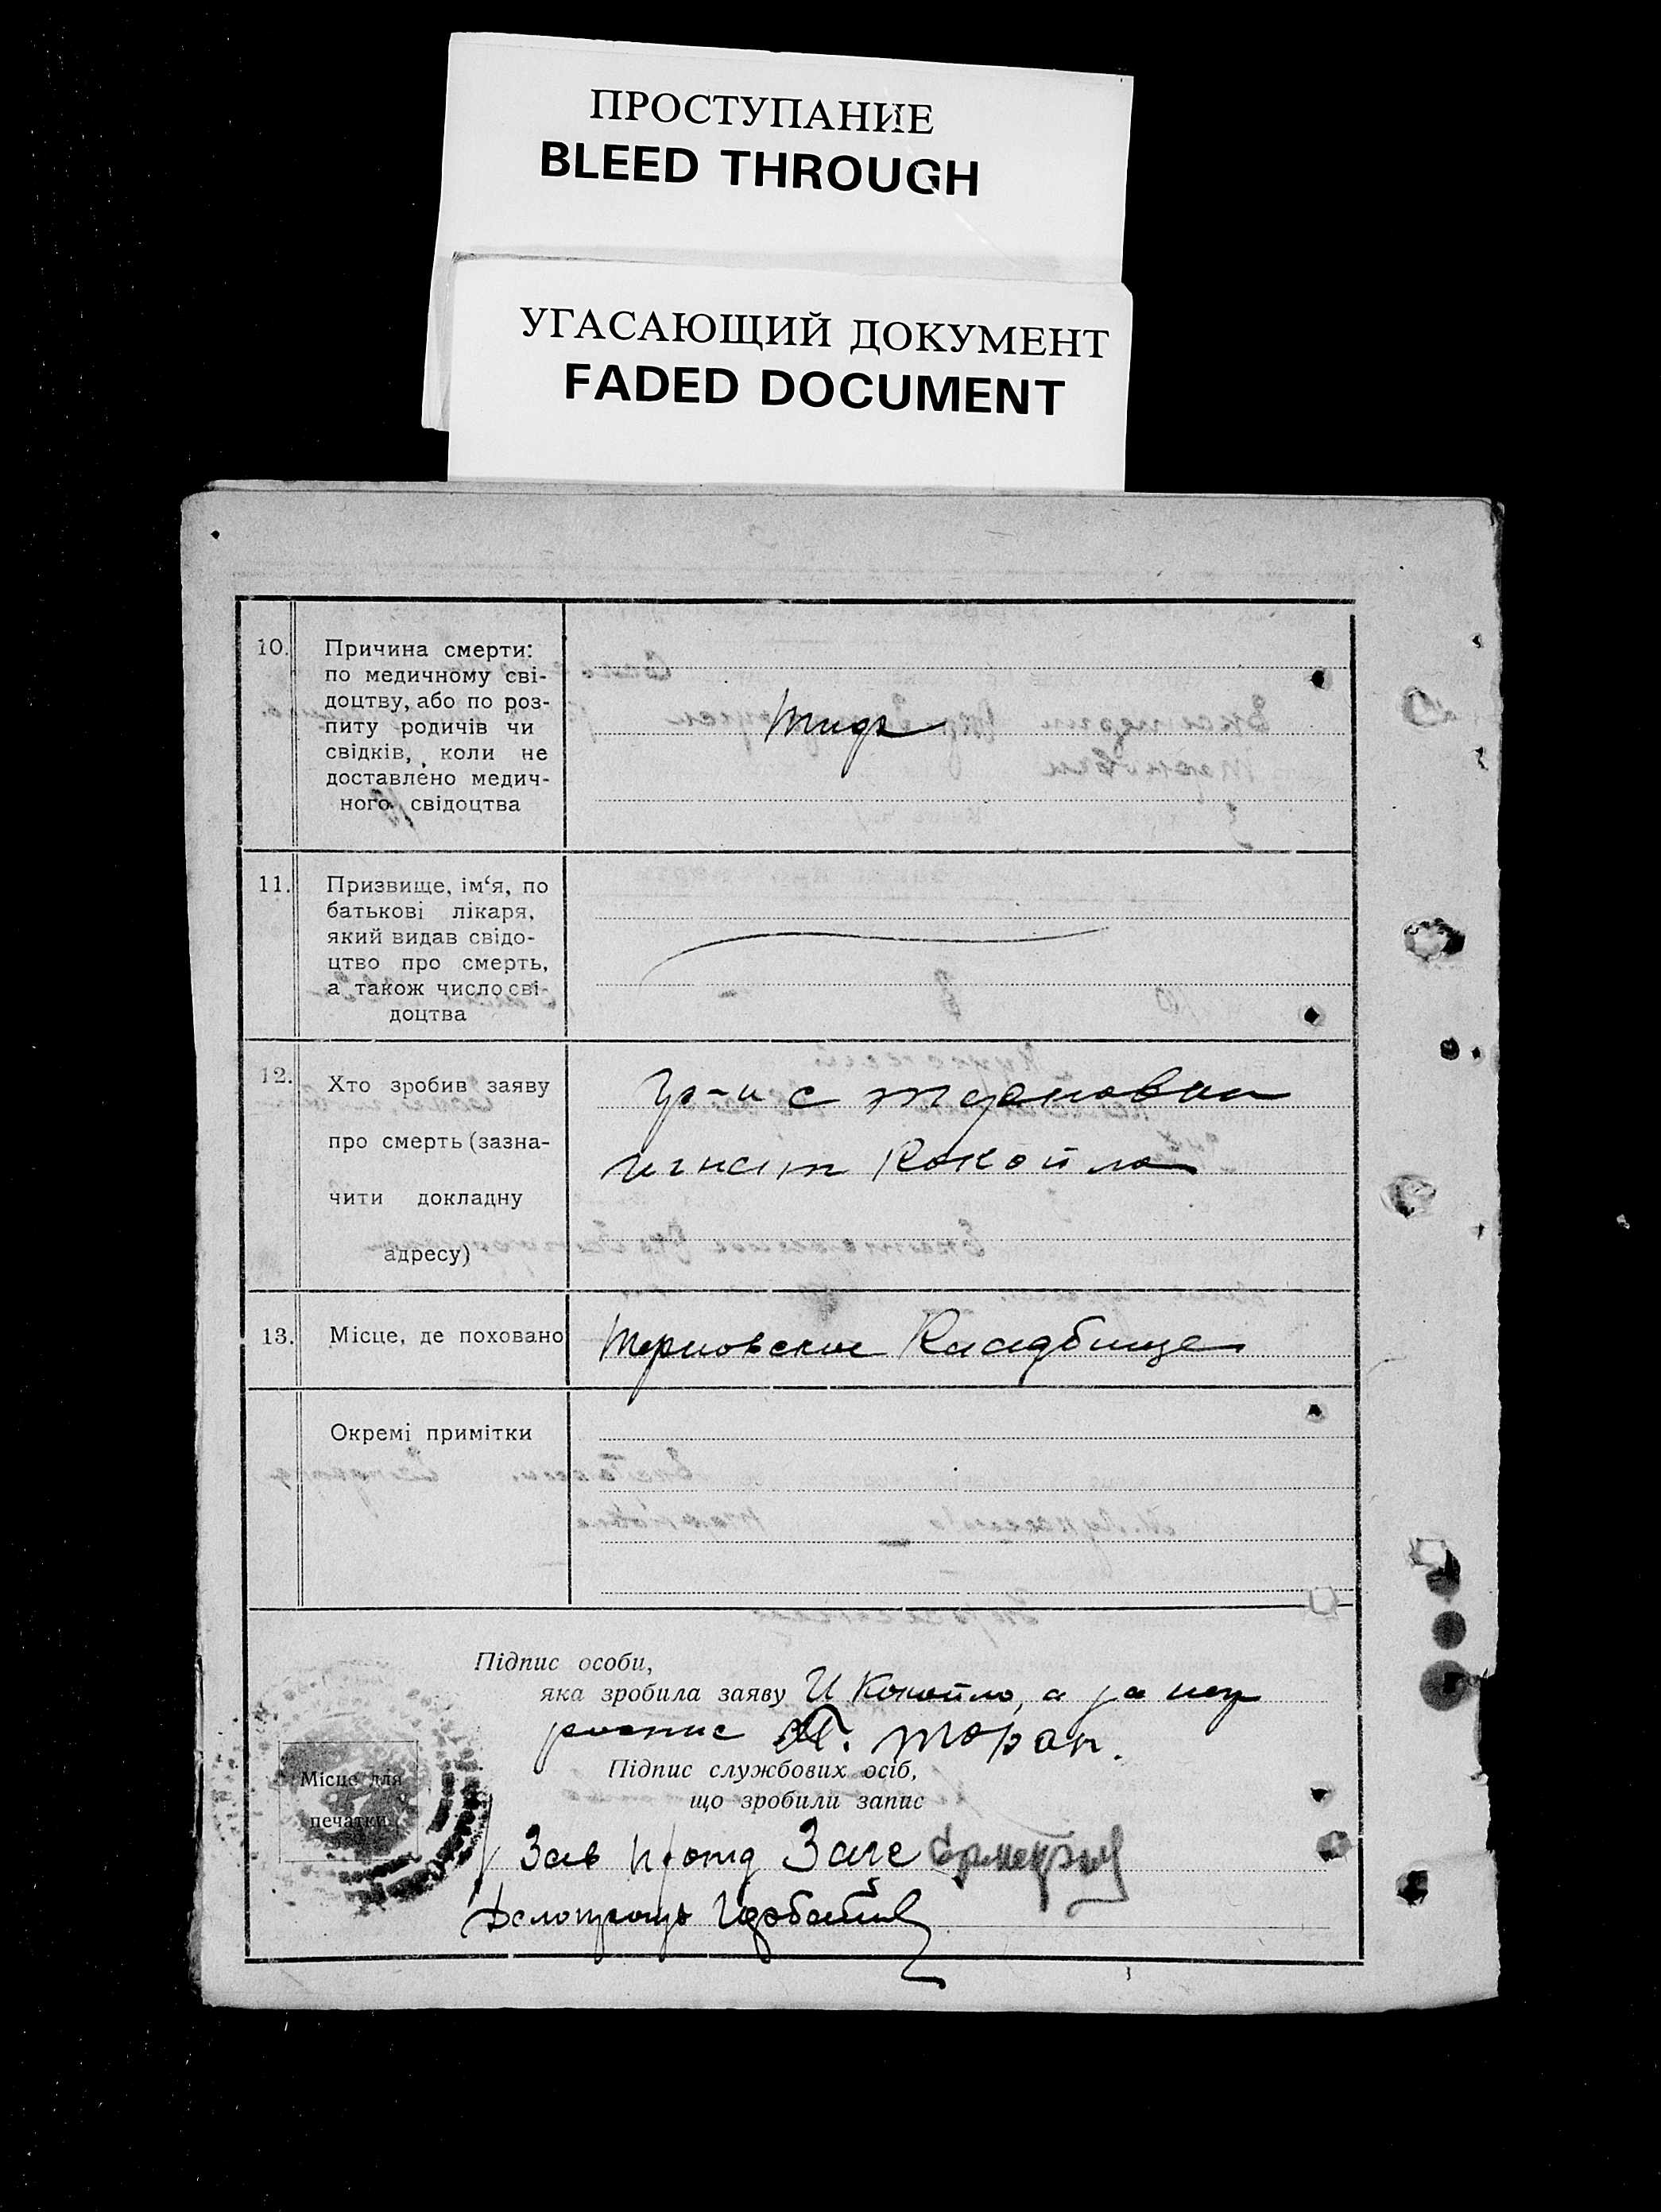 ПРОСТУПАНИЕ
BLEED THROUGH
УГАСАЮЩИЙ ДОКУМЕНТ
FADED DOCUMENT
10. Причина смерти:
по медичному сві-
доцтву, або по роз-
питу родичів чи
свідків, коли не
доставлено медич-
ного свідоцтва
Тиф
11. Призвище, ім‘я, по
батькові лікаря,
який видав свідо-
цтво про смерть,
а також число сві-
доцтва
12. Хто зробив заяву
про смерть (зазна-
чити докладну
адресу)
Гр-н с
Игнат Кокойло
13. Місце, де поховано
Терновское Кладбище
Окремі примітки
Підпис особи,
яка зробила заяву И Кокойло, а за
Підпис службових осіб,
що зробили запис
Місце для
печатки
Зав